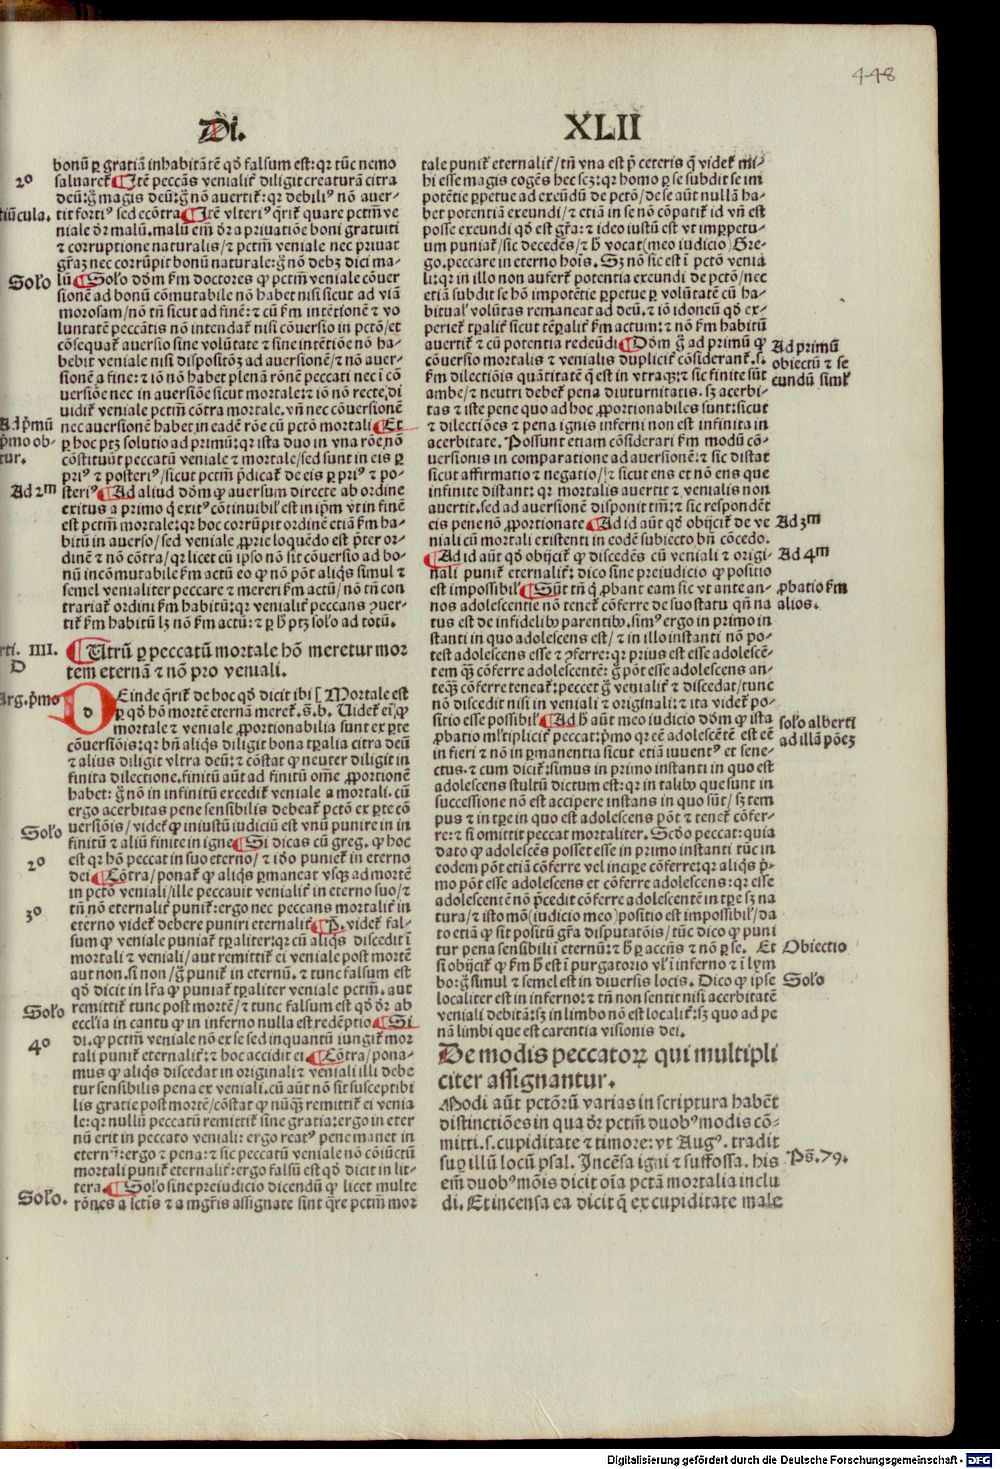 448
Di. XLII
bonū ꝑ gratiā inhabitātē qḋ falsum est: qꝛ tūc nemo
saluareꝭ ¶ Itē peccās venialiꝭ diligit creaturā citra
deū: ḡ magis deū: ḡ nō auertiꝭ: qꝛ debiliꝰ nō auer-
tit fortiꝰ sed ecōtra ¶ Itē vlteriꝰ q̄riꝭ quare pctm̄ ve
niale dr̄ malū. malū em̄ dr̄ a priuatiōe boni gratuiti
⁊ corruptione naturalis/ ⁊ pctm̄ veniale nec priuat
gr̄aꝫ nec corrūpit bonū naturale: ḡ nō debꝫ dici ma-
lū ¶ Solo ḋōm ẜm doctores ꝙ pctm̄ veniale cōuer
sionē ad bonū cōmutabile nō habet nisi sicut ad viā
morosam/ nō tn̄ sicut ad finē: ⁊ cū ẜm intētionē ⁊ vo
luntatē peccātis nō intendaꝭ nisi cōuersio in pctō/ et
cōsequaꝭ auersio sine volūtate ⁊ sine intētiōe nō ha-
bebit veniale nisi dispositōꝫ ad auersionē/ ⁊ nō auer-
sionē a fine: ⁊ iō nō habet plenā rōnē peccati nec ī cō
uersiōe nec in auersiōe sicut mortale: ⁊ iō nō recte di
uidiꝭ veniale pctm̄ cōtra mortale. vn̄ nec cōuersionē
nec auersionē habet in eadē rōe cū pctō mortali ¶ Et
ꝑ hoc ptꝫ solutio ad primū: qꝛ ista duo in vna rōe nō
cōstituūt peccatū veniale ⁊ mortale/ sed sunt in eis ꝑ
priꝰ ⁊ posteriꝰ/ sicut pctm̄ p̄dicaꝭ de eis ꝑ priꝰ ⁊ po-
steriꝰ ¶ Ad aliud ḋōm ꝙ auersum directe ab ordine
exitus a primo q̄ exitꝰ cōtinuibiꝉ est in ip̄m vt in finē
est pctm̄ mortale: qꝛ hoc corrūpit ordinē etiā ẜm ha-
bitū in auerso/ sed veniale ꝓprie loquēdo est p̄ter or-
dinē ⁊ nō cōtra/ qꝛ licet cū ipso nō sit cōuersio ad bo-
nū incōmutabile ẜm actū eo ꝙ nō pōt aliq̄s simul ⁊
semel venialiter peccare ⁊ mereri ẜm actū/ nō tn̄ con
trariaꝭ ordini ẜm habitū: qꝛ venialiꝭ peccans ꝯuer-
tiꝭ ẜm habitū lꝫ nō ẜm actū: ⁊ ꝑ hꝰ ptꝫ solo ad totū.
¶ Utrū ꝑ peccatū mortale hō meretur mor
tem eternā ⁊ nō pro veniali.
d Einde q̄riꝭ de hoc qḋ dicit ibi [Mortale est
ꝑ qḋ hō mortē eternā mereꝭ. s̄. b. Uideꝭ eiꝯ ꝙ
mortale ⁊ veniale ꝓportionabilia sunt ex ꝑte
cōuersiōis: qꝛ bn̄ aliq̄s diligit bona tꝑalia citra deū
⁊ alius diligit vltra deū: ⁊ cōstat ꝙ neuter diligit in
finita dilectione. finitū aūt ad finitū om̄e ꝓportionē
habet: ḡ nō in infinitū excediꝭ veniale a mortali. cū
ergo acerbitas pene sensibilis debeaꝭ pctō ex ꝑte cō
uersiōis/ videꝭ ꝙ iniustū iudiciū est vnū punire in in
finitū ⁊ aliū finite in igne ¶ Si dicas cū greg. ꝙ hoc
est qꝛ hō peccat in suo eterno/ ⁊ iō punieꝭ in eterno
dei ¶ Cōtra/ ponaꝭ ꝙ aliq̄s ꝑmaneat vsqꝫ ad mortē
in pctō veniali/ ille peccauit venialiꝭ in eterno suo/ ⁊
tn̄ nō eternaliꝭ puniꝭ: ergo nec peccans mortaliꝭ in
eterno videꝭ debere puniri eternaliꝭ ¶ P̄. videꝭ fal-
sum ꝙ veniale puniaꝭ tꝑaliter: qꝛ cū aliq̄s discedit ī
mortali ⁊ veniali/ aut remittiꝭ ei veniale post mortē
aut non. si non/ ḡ puniꝭ in eternū. ⁊ tunc falsum est
qḋ dicit in lr̄a ꝙ puniaꝭ tꝑaliter veniale pctm̄. aut
remittiꝭ tunc post mortē/ ⁊ tunc falsum est qḋ dr̄ ab
eccl̄ia in cantu ꝙ in inferno nulla est redēptio ¶ Si
di. ꝙ pctm̄ veniale nō ex se sed inquantū iungiꝭ mor
tali puniꝭ eternaliꝭ: ⁊ hoc accidit ei ¶ Cōtra/ pona-
mus ꝙ aliq̄s discedat in originali ⁊ veniali illi debe
tur sensibilis pena ex veniali. cū aūt nō sit susceptibi
lis gratie post mortē/ cōstat ꝙ nūq̄ꝫ remittiꝭ ei venia
le: qꝛ nullū peccatū remittiꝭ sine gratia: ergo in eter
nū erit in peccato veniali: ergo reatꝰ pene manet in
eternū: ergo ⁊ pena: ⁊ sic peccatū veniale nō cōiūctū
mortali puniꝭ eternaliꝭ: ergo falsū est qḋ dicit in lit-
tera. ¶ Solo sine preiudicio dicendū ꝙ licet multe
rōnes a sctīs ⁊ a mgr̄is assignate sint q̄re pctm̄ mor
2o
tiūcula.
Solo
Ad p̄mū
p̄mo ob-
tur.
Ad 2m
rti. IIII.
D
Arg. p̄mo
Solo
2o
3o
Solo
4o
Solo.
tale puniꝭ eternaliꝭ/ tn̄ vna est p̄ ceteris q̄ videꝭ mi-
hi esse magis cogēs hec scꝫ: qꝛ homo ꝑ se subdit se im
potētie ꝑpetue ad exeūdū de pctō/ de se aūt nullā ha-
bet potentiā exeundi/ ⁊ etiā in se nō cōpatiꝭ id vn̄ est
posse exeundi qḋ est gr̄a: ⁊ ideo iustū est vt imꝑpetu-
um puniaꝭ/ sic decedēs/ ⁊ hꝰ vocat (meo iudicio) Gre-
go. peccare in eterno hoīs. Sꝫ nō sic est ī pctō venia
li: qꝛ in illo non auferꝭ potentia exeundi de pctō/ nec
etiā subdit se hō impotētie ꝑpetue ꝑ volūtatē cū ha-
bitualꝭ volūtas remaneat ad deū. ⁊ iō idoneū qḋ ex-
perieꝭ tꝑaliꝭ sicut tēꝑaliꝭ ẜm actum: ⁊ nō ẜm habitū
auertiꝭ ⁊ cū potentia redeūdi ¶ Dōm ḡ ad primū ꝙ
cōuersio mortalis ⁊ venialis dupliciꝭ cōsideranꝭ. s.
ẜm dilectiōis quātitatē q̄ est in vtraqꝫ: ⁊ sic finite sūt
ambe/ ⁊ neutri debeꝭ pena diuturnitatis. sꝫ acerbi-
tas ⁊ iste pene quo ad hoc ꝓportionabiles sunt: sicut
⁊ dilectiōes ⁊ pena ignis inferni non est infinita in
acerbitate. Possunt etiam cōsiderari ẜm modū cō-
uersionis in comparatione ad auersionē: ⁊ sic distat
sicut affirmatio ⁊ negatio/ ⁊ sicut ens et nō ens que
infinite distant: qꝛ mortalis auertit ⁊ venialis non
auertit. sed ad auersionē disponit tm̄: ⁊ sic respondēt
eis pene nō ꝓportionate ¶ Ad id aūt qḋ obijciꝭ de ve
niali cū mortali existenti in eodē subiecto bn̄ cōcedo.
¶ Ad id aūt qḋ obijciꝭ ꝙ discedēs cū veniali ⁊ origi-
nali puniꝭ eternaliꝭ: dico sine preiudicio ꝙ positio
est impossibilꝭ ¶ Sūt tn̄ q̄ ꝓbant eam sic vt ante an-
nos adolescentie nō teneꝭ cōferre de suo statu qn̄ na
tus est de infidelibꝰ parentibꝰ. simꝰ ergo in primo in
stanti in quo adolescens est/ ⁊ in illo instanti nō po-
test adolescens esse ⁊ ꝯferre: qꝛ prius est esse adolescē-
tem q̄ꝫ cōferre adolescentē: ḡ pōt esse adolescens an-
teq̄ꝫ cōferre teneaꝭ: peccet ḡ venialiꝭ ⁊ discedat/ tunc
nō discedit nisi in veniali ⁊ originali: ⁊ ita videꝭ po-
sitio esse possibilꝭ ¶ Ad hꝰ aūt meo iudicio ḋōm ꝙ ista
ꝓbatio ml̄tipliciꝭ peccat: p̄mo qꝛ eē adolescētē est eē
in fieri ⁊ nō in ꝑmanentia sicut etiā iuuentꝰ et sene-
ctus. ⁊ cum diciꝭ: simus in primo instanti in quo est
adolescens stultū dictum est: qꝛ in talibꝰ que sunt in
successione nō est accipere instans in quo sūt/ sꝫ tem
pus ⁊ in tꝑe in quo est adolescens pōt ⁊ teneꝭ cōfer-
re: ⁊ si omittit peccat mortaliter. Scḋo peccat: quia
dato ꝙ adolescēs posset esse in primo instanti tūc in
eodem pōt etiā cōferre vel incipe cōferre: qꝛ aliq̄s p̄-
mo pōt esse adolescens et cōferre adolescens: qꝛ esse
adolescentē nō p̄cedit cōferre adolescentē in tꝑe sꝫ na
tura/ ⁊ isto mō (iudicio meo) positio est impossibilꝭ/ da
to etiā ꝙ sit positū gr̄a disputatōis/ tūc dico ꝙ puni
tur pena sensibili ī eternū: ⁊ hꝰ ꝑ accn̄s ⁊ nō ꝑ se. Et
si obijciꝭ ꝙ ẜm hꝰ est ī purgatorio vꝉ ī inferno ⁊ ī lym
bo: ḡ simul ⁊ semel est in diuersis locis. Dico ꝙ ipse
localiter est in inferno: ⁊ tn̄ non sentit nisi acerbitatē
veniali debitā: sꝫ in limbo nō est localiꝭ: sꝫ quo ad pe
nā limbi que est carentia visionis dei.
De modis peccatoꝝ qui multipli
citer assignantur.
Modi aūt pctōrū varias in scriptura habēt
distinctiōes in qua dr̄ pctm̄ duobꝰ modis cō-
mitti. s. cupiditate ⁊ timore: vt Augꝰ. tradit
suꝑ illū locū psal. Incēsa igni ⁊ suffossa. his
em̄ duobꝰ mōis dicit oīa pctā mortalia inclu
di. Et incensa ea dicit q̄ ex cupiditate male
Ad primū
obiectū ⁊ se
cundū simꝉꝭ
Ad 3m
Ad 4m
ꝓbatio ẜm
alios.
solo alberti
ad illā pōeꝫ
Obiectio
Solo
Ps̄. 79.
Digitalisierung gefördert durch die Deutsche Forschungsgemeinschaft - DFG